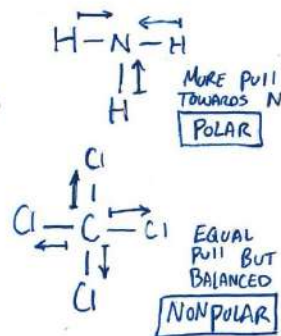 H-N-H
H
MORE PULL
TOWARDS N
POLAR
Cl
Cl-C-Cl
Cl
EQUAL
PULL BUT
BALANCED
NONPOLAR